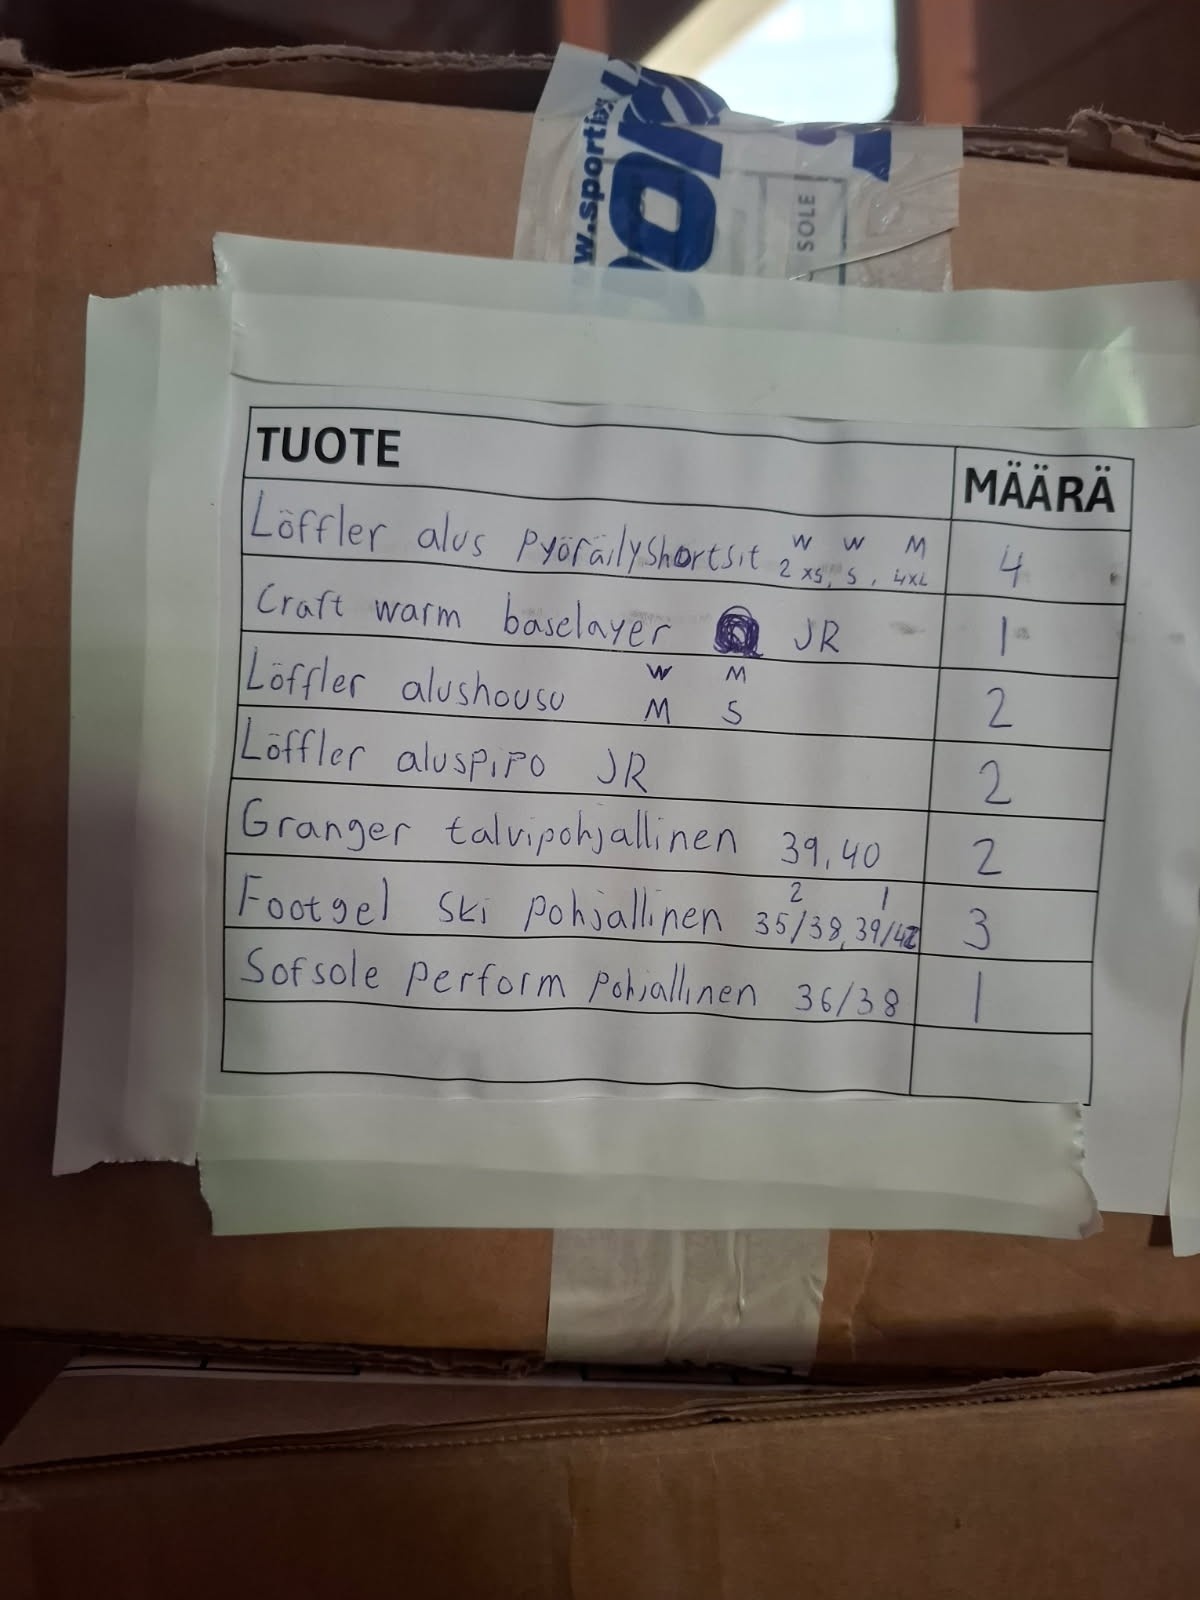 w.sporti
SOLE
TUOTE MÄÄRÄ
W W M
Löffler alus pyöräilyshortsit 2 XS, S, 4XL 4
Craft warm baselayer JR 1
W M
Löffler alushousu M S 2
Löffler aluspipo JR 2
Granger talvipohjallinen 39,40 2
2 1
Footgel Ski pohjallinen 35/38, 39/42 3
Sofsole perform pohjallinen 36/38 1